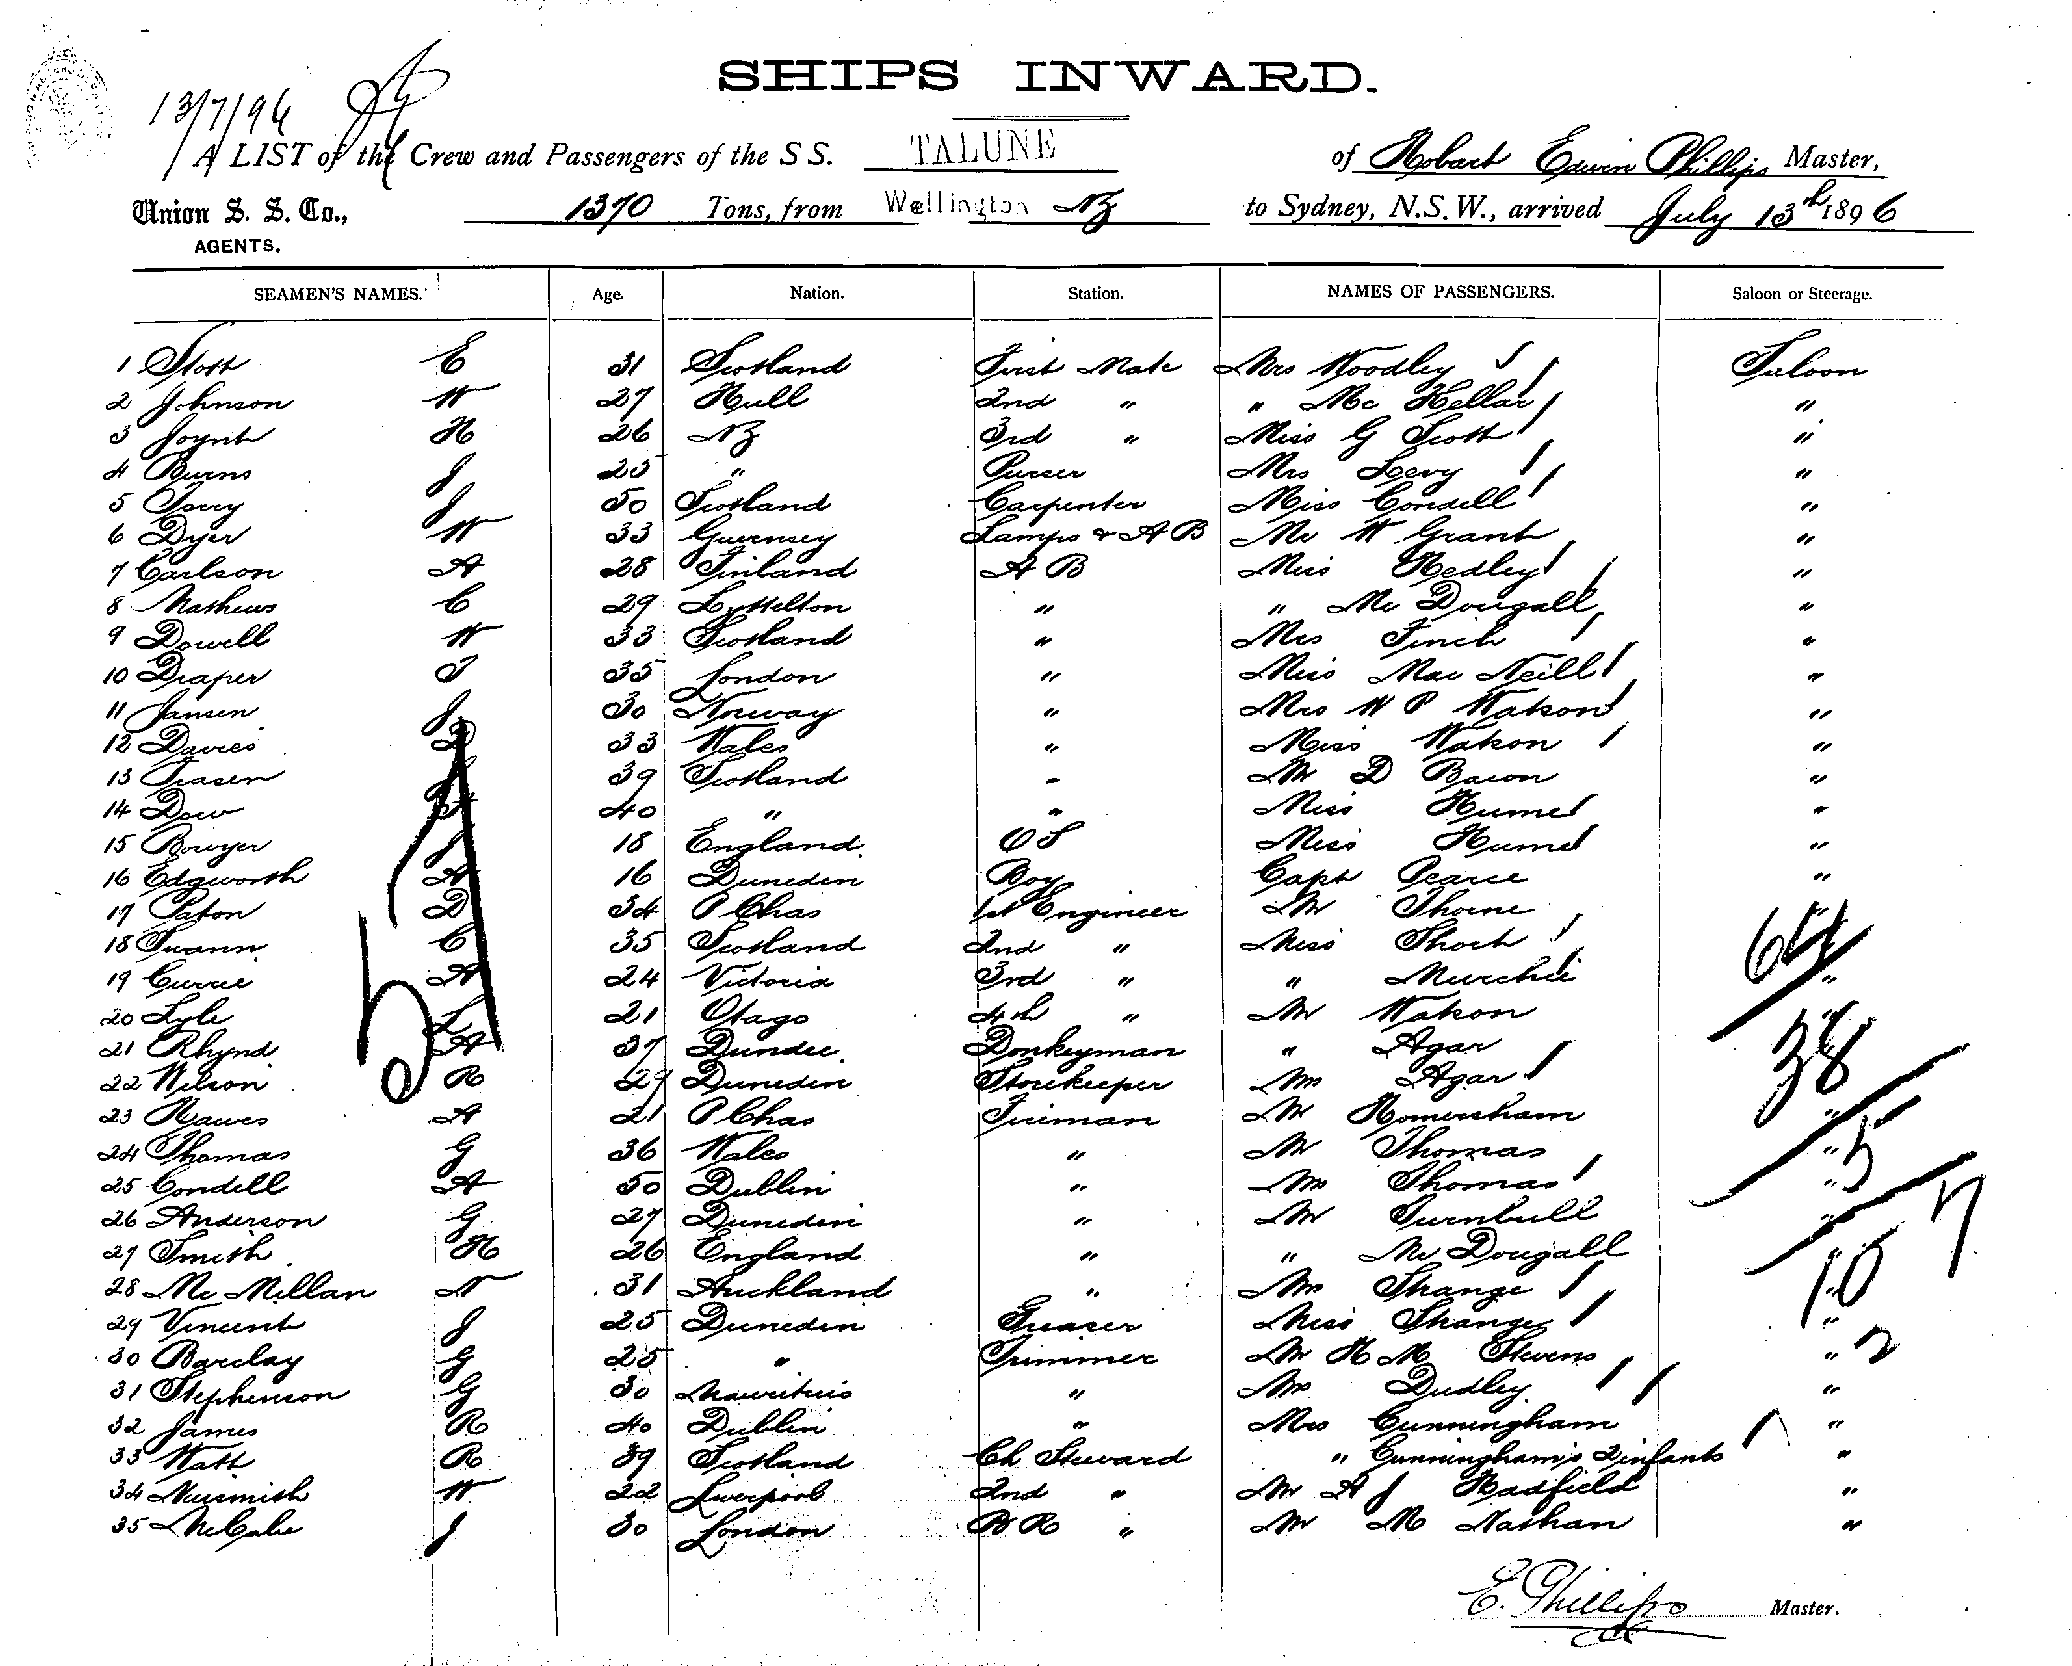 SHIPS INWARD.
13/7/96
A LIST of the Crew and Passengers of the S S. TALUNE of Hobart Edwin Phillips Master,
Union S. S. Co., 1370 Tons, from Wellington NZ to Sydney, N.S.W., arrived July 13th 1896
AGENTS.
SEAMEN'S NAMES. Age. Nation. Station. NAMES OF PASSENGERS. Saloon or Steerage.
1 Stott E 31 Scotland First Mate Mrs Woodley Saloon
2 Johnson W 27 Hull 2nd " " Mc Kellar "
3 Joynt H 26 NZ 3rd " Miss G Scott "
4 Burns J 25 " Purser Mrs Levy "
5 Torry J 50 Scotland Carpenter Miss Condell "
6 Dyer W 33 Guernsey Lamps & A B Mr W Grant "
7 Carlson A 28 Finland A B Miss Hedley "
8 Mathews C 29 Lyttelton " " Mc Dougall "
9 Dowell W 33 Scotland " Mrs Finch "
10 Draper T 35 London " Miss Mac Neill "
11 Jansen J 30 Norway " Mrs W P Watson "
12 Davies D 33 Wales " Miss Watson "
13 Frasen 39 Scotland " Mr D Bacon "
14 Dow 40 " " Miss Hume "
15 Bowyer J 18 England O S Miss Hume "
16 Edgworth A 16 Dunedin Boy Capt Pearce "
17 Paton D 34 P Chas 1st Engineer Mr Thorne "
18 Swann C 35 Scotland 2nd " Miss Short 64
19 Currie A 24 Victoria 3rd " " Murchie "
20 Lyle L 21 Otago 4th " Mr Watson "
21 Rhynd A 37 Dundee Donkeyman " Agar 38
22 Wilson R 29 Dunedin Storekeeper Mrs Agar
23 Hawes A 21 P Chas Fireman Mr Homersham "
24 Thomas G 36 Wales " Mr Thomas " 5
25 Condell A 50 Dublin " Mrs Thomas "
26 Anderson G 27 Dunedin " Mr Turnbull " 7
27 Smith H 26 England " " Mc Dougall "
28 Mc Millan N 31 Auckland " Mrs Strange 10
29 Vincent J 25 Dunedin Greaser Miss Strange "
30 Barclay G 25 " Trimmer Mr H M Stevens " 2
31 Stephenson G 30 Mauritius " Mrs Dudley "
32 James R 40 Dublin " Mrs Cunningham "
33 Watt R 39 Scotland Ch Steward " Cunningham's 2 infants "
34 Naismith W 22 Liverpool 2nd " Mr A J Hadfield "
35 McCabe J 30 London B R " Mr M Nathan "
57
E. Phillips Master.